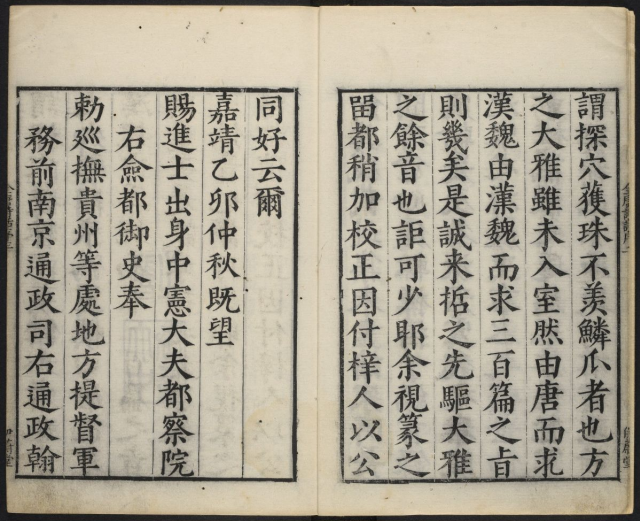 謂探穴蒦珠不羨鱗爪者也方
之大雅雖未入室然由唐而求
漢魏由漢魏而求三百篇之旨
則幾矣是誠来哲之先驅大雅
之餘音也詎可少耶余視篆之
畱都稍加校正因付梓人以公
同好云爾
嘉靖乙卯仲秋既望
賜進士出身中憲大夫都察院
右僉都御史奉
勅廵撫貴州等處地方提督軍
務前南京通政司右通政翰